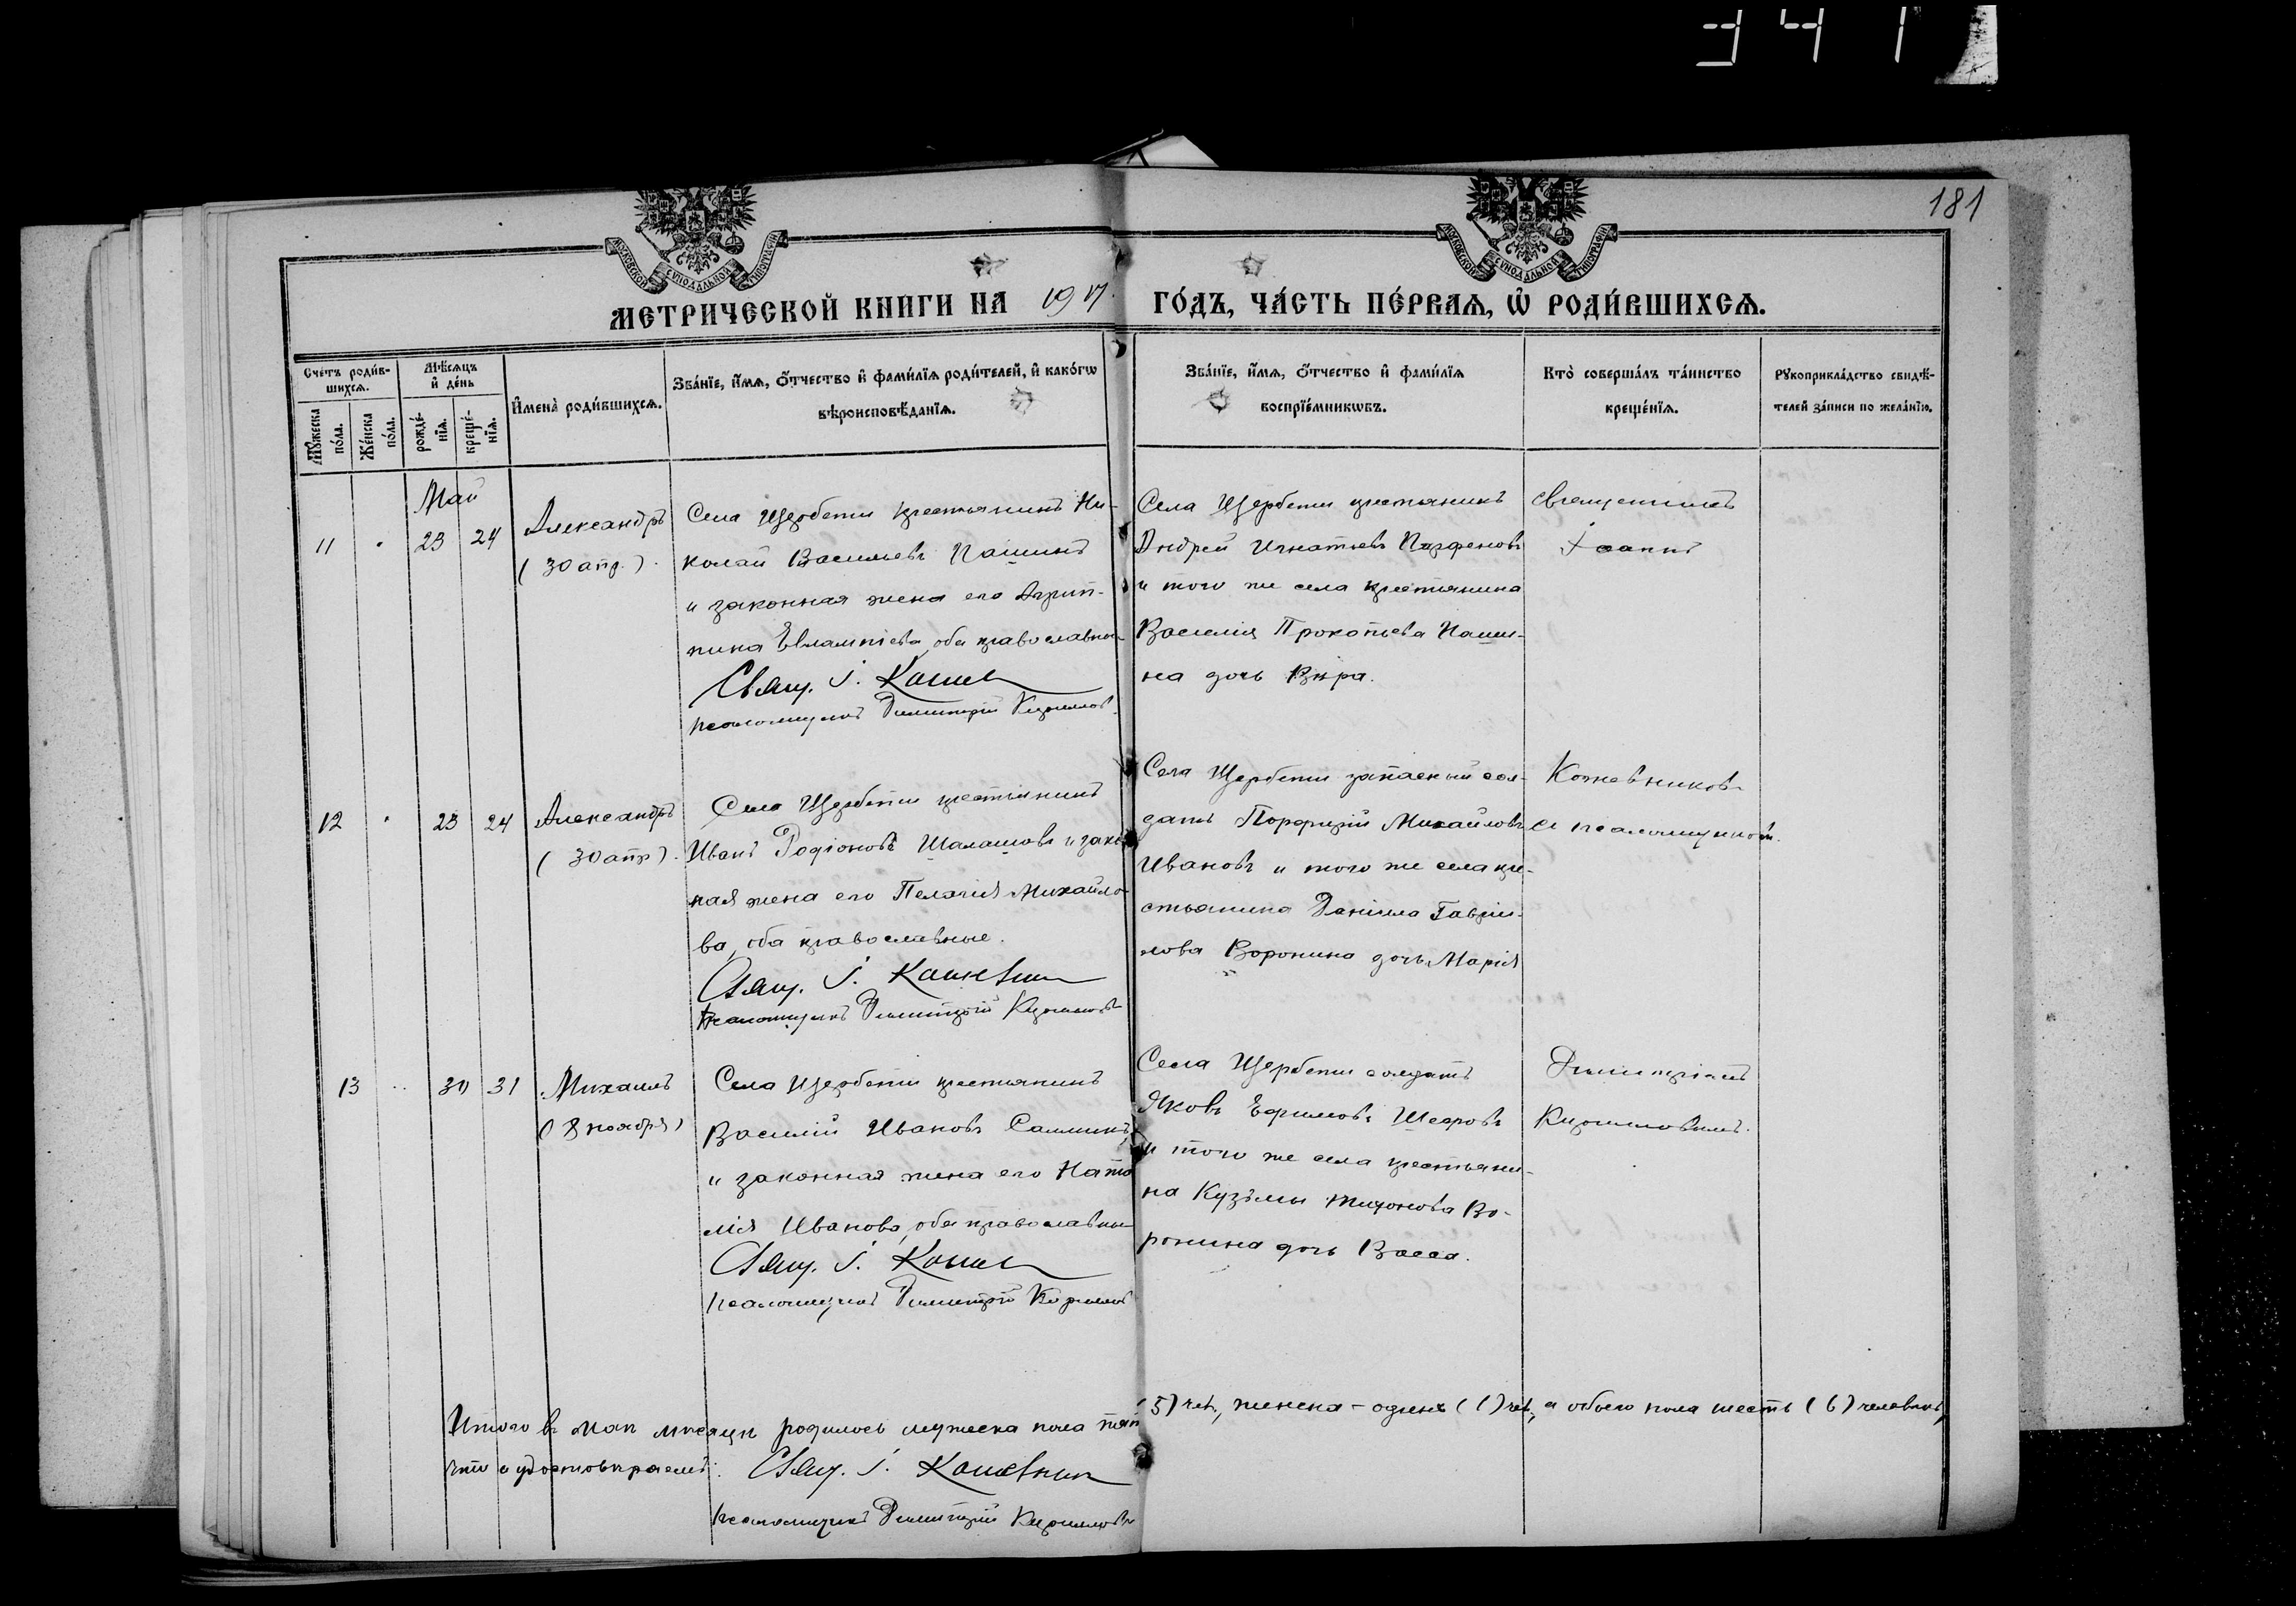 341
181
МОСКОВСКОЙ СѴНОДАЛЬНОЙ ТИПОГРАФІИ
МОСКОВСКОЙ СѴНОДАЛЬНОЙ ТИПОГРАФІИ
МЕТРИЧЕСКОЙ КНИГИ НА 1917 ГО́ДЪ, ЧА́СТЬ ПЕ́РВАѦ, Ѡ҆ РОДИ́ВШИХСѦ.
Сче́тъ роди́в-
шихсѧ.
Мꙋ́жеска
по́ла.
Же́нска
по́ла.
Мѣ́сѧцъ
и҆ де́нь
рожде́-
нїѧ.
креще́-
нїѧ.
И҆мена̀ роди́вшихсѧ.
Зва́нїе, и҆́мѧ, ѻ҆́тчество и҆ фами́лїѧ роди́телей, и҆ како́гѡ
вѣроисповѣ́данїѧ.
Зва́нїе, и҆́мѧ, ѻ҆́тчество и҆ фами́лїѧ
воспрїе́мникѡвъ.
Кто̀ соверша́лъ та́инство
креще́нїѧ.
Рꙋкоприкла́дство свидѣ́-
телей за́писи по жела́нїю.
Май
11 23 24
Александръ
(30 апр.)
Села Щербети крестьянинъ Ни-
колай Васильевъ Пашинъ
и законная жена его Агрип-
пина Евлампіева, оба православные
Свящ. І. Кожев
Псаломщикъ Димитрій Кирилловъ
Села Щербети крестьянинъ
Андрей Игнатьевъ Парфеновъ
и того же села крестьянина
Василія Прокопьева Паши-
на дочь Вѣра.
Священникъ
Іоаннъ
12 23 24
Александръ
(30 апр.)
Села Щербети крестьянинъ
Иванъ Родіоновъ Шалашовъ и закон
ная жена его Пелагія Михайло-
ва, оба православные.
Свящ. І. Кожевник
Псаломщикъ Димитрій Кирилловъ
Села Щербети запасный сол-
датъ Порфирій Михайловъ
Ивановъ и того же села кре-
стьянина Даніила Гаврии-
лова Воронина дочь Марія
Кожевниковъ
съ псаломщикомъ
13 30 31
Михаилъ
(8 ноября)
Села Щербети крестьянинъ
Василій Ивановъ Сашинъ,
и законная жена его Ната
лія Иванова, оба православные
Свящ. І. Кожев
Псаломщикъ Димитрій Кирилловъ
Села Щербети солдатъ
Яковъ Ефимовъ
и того же села крестьяни-
на Кузьмы Тихонова Во-
ронина дочь Васса.
Димитріемъ
Кирилловымъ.
Итого въ маѣ мѣсяцѣ родилось мужеска пола пять (5) чел., женска - одинъ (1) чел., а обоего пола шесть (6) человѣкъ,
что и удостовѣряемъ: Свящ. І. Кожевник
Псаломщикъ Димитрій Кирилловъ